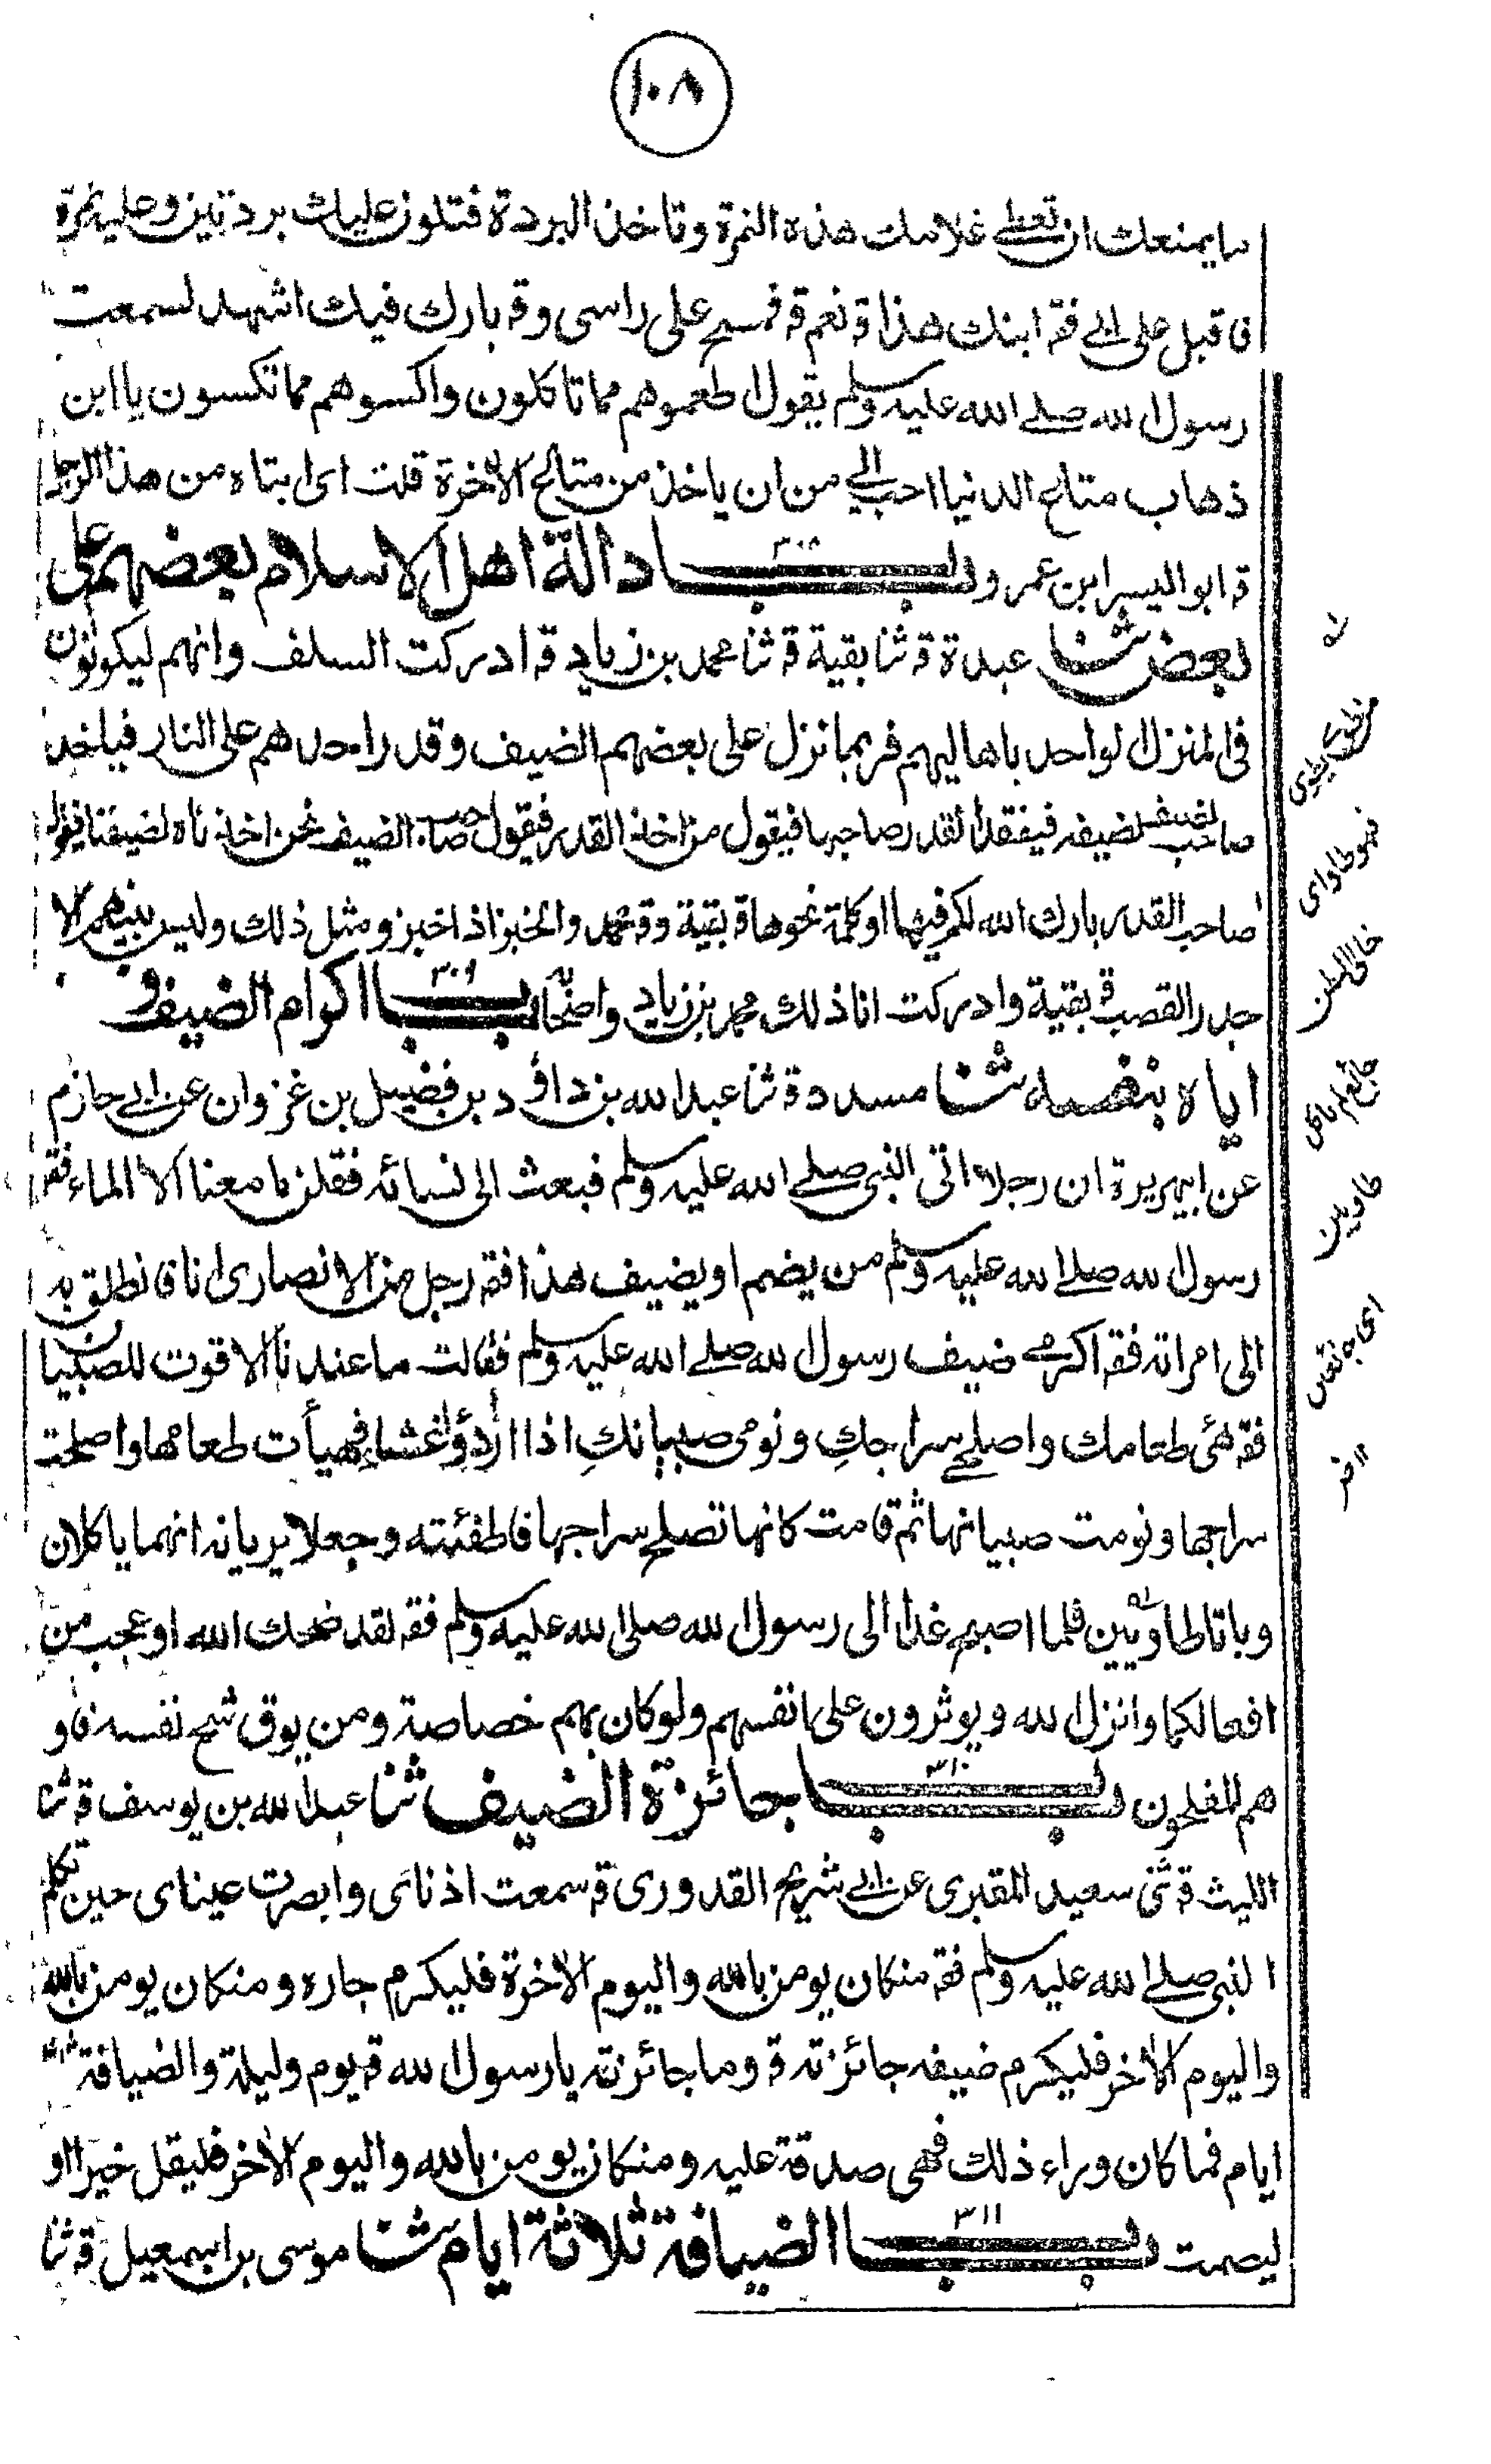 ١٠٨
ما يمنعك ان تعطى غلامك هذه النمرة وتاخذ البردة فتكون عليك بردتين وعليه نمرة
فاقبل على ابى فقـ ابنك هذا قـ نعم قـ فمسح على راسى وقـ بارك فيك اشهد لسمعت
رسول الله صلى الله عليه وسلم يقول اطعموهم مما تاكلون واكسوهم مما تكسون يا ابن
ذهاب متاع الدنيا احب الى من ان ياخذ من متاع الاخرة قلت اى ابتاه من هذا الرجل
قـ ابو اليسر ابن عمرو باب ٣٠٨ دالة اهل الاسلام بعضهم على
بعض ثنا عبدة قـ ثنا بقية قـ ثنا محمد بن زياد قـ ادركت السلف وانهم ليكونون
فى المنزل الواحد باهاليهم فربما نزل على بعضهم الضيف وقدر احدهم على النار فياخذ
صاحب الضيف لضيفه فيفقد القدر صاحبها فيقول من اخذ القدر فيقول صاحب الضيف نحن اخذناه لضيفنا فيقول
صاحب القدر بارك الله لكم فيها او كلمة نحوها قـ بقية وقـ محمد والخبز اذا خبز ومثل ذلك وليس بينهم الا
جدر القصب قـ بقية وادركت انا ذلك محمد بن زياد واصحابه باب ٣٠٩ اكرام الضيف و
اياه بنفسه ثنا مسدد قـ ثنا عبد الله بن داؤد بن فضيل بن غزوان عن ابى حازم
عن ابيهريرة ان رجلا اتى النبى صلى الله عليه وسلم فبعث الى نسائه فقلن ما معنا الا الماء فقـ
رسول الله صلى الله عليه وسلم من يضم او يضيف هذا فقـ رجل من الانصارى انا فانطلق به
الى امراته فقـ اكرمى ضيف رسول الله صلى الله عليه وسلم فقالت ما عندنا الا قوت للصبيان
فقـ هئى طعامك واصلحى سراجكِ ونومى صبيانكِ اذا ارادؤا عشاء فهيأت طعامها واصلحت
سراجها ونومت صبيانها ثم قامت كانها تصلح سراجها فاطفئته وجعلا يريانه انهما ياكلان
وباتا طاويين فلما اصبح غدا الى رسول الله صلى الله عليه وسلم فقـ لقد ضحك الله او عجب من
افعالكما وانزل الله ويوثرون على انفسهم ولو كان بهم خصاصة ومن يوق شح نفسه فاو
هم المفلحون باب ٣١٠ جائزة الضيف ثنا عبد الله بن يوسف قـ ثنا
الليث قـ ثنى سعيد المقبرى عن ابى شريح القدورى قـ سمعت اذناى وابصرت عيناى حين تكلم
النبى صلى الله عليه وسلم فقـ منكان يومن بالله واليوم الاخرة فليكرم جاره ومنكان يومن بالله
واليوم الاخر فليكرم ضيفه جائزته قـ وما جائزته يا رسول الله قـ يوم وليلة والضيافة ثلثة
ايام فما كان وراء ذلك فهى صدقة عليه ومنكان يومن بالله واليوم الاخر فليقل خيرا او
ليصمت باب ٣١١ الضيافة ثلاثة ايام ثنا موسى بن اسمعيل قـ ثنا